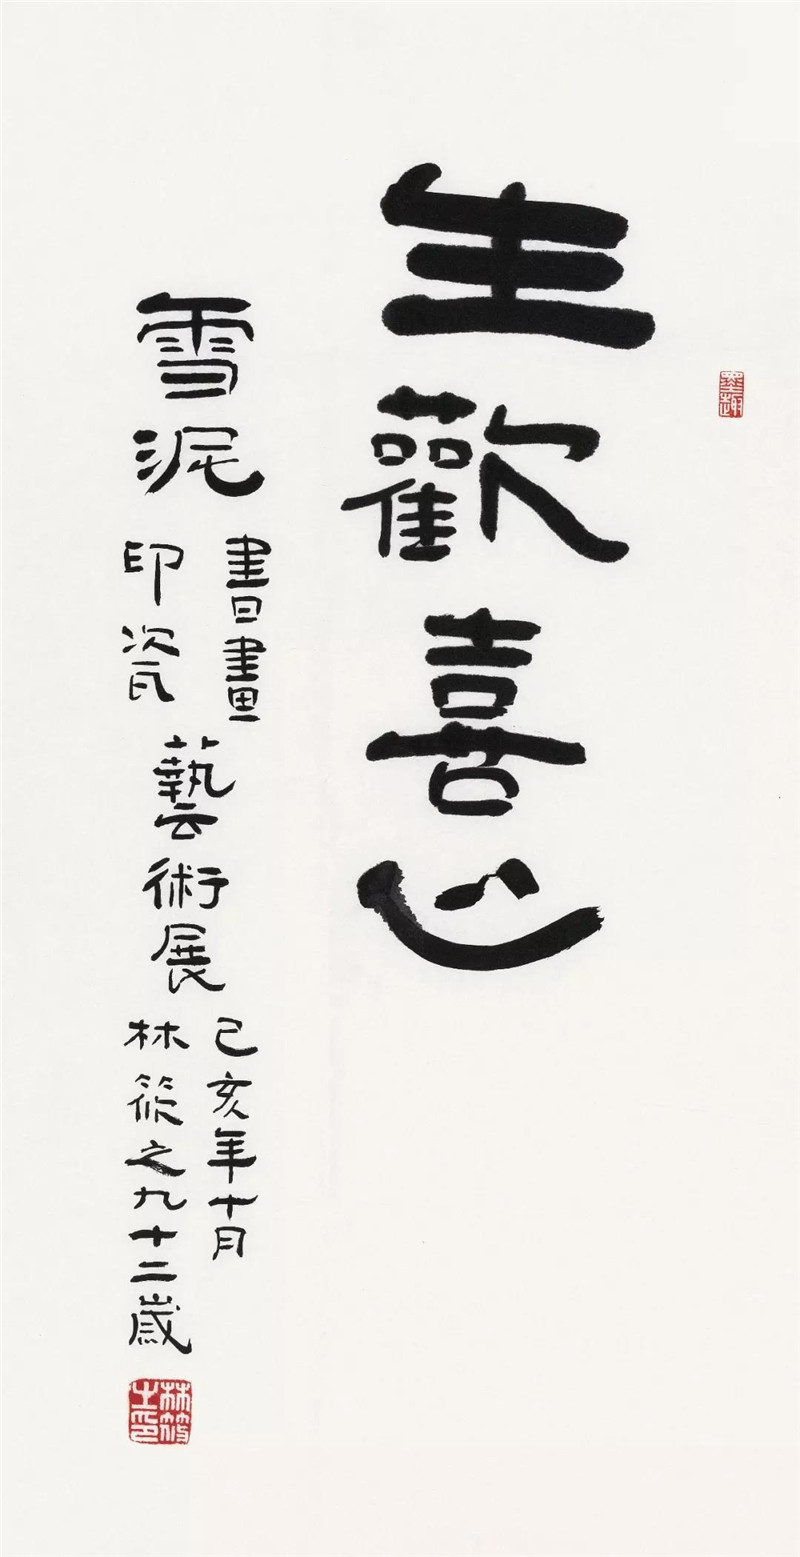 生歡喜心
雪泥
書畫
印瓷
藝術展
己亥年十月
林筱之九十二歲
墨趣
林筱之印